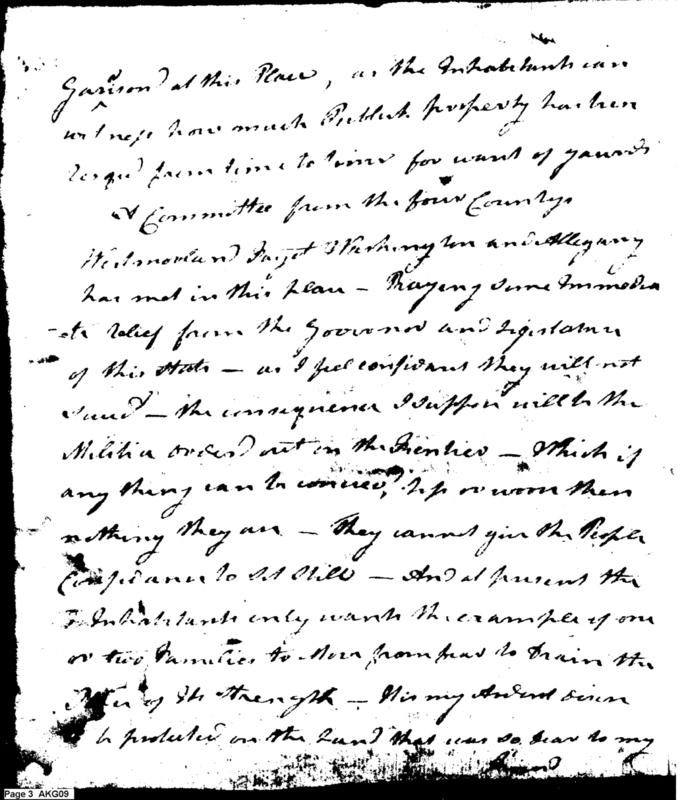 Garison'd at this Place, as the Inhabitants can
witness how much Publick property has been
Resqu'd from time to time for want of gaurds
A Committee from the four Countys
Westmorland Fayet Washington and Allegany
has met in this place – Praying some Immedia
te relief from the Governor and Legislature
of this State – as I feel confidant they will not
– the consequence I suppose will be the
Militia orderd out on the Frontier – Which if
any thing can be less or worse then
nothing they are – they cannot give the People
Confidance to Set Still – And at present the
Inhabitants only wants the example of one
or two Families to Move from fear to Drain the
of its Strength – It is my Ardent desire
to be protected on the Land that was so dear to my
Page 3 AKG09